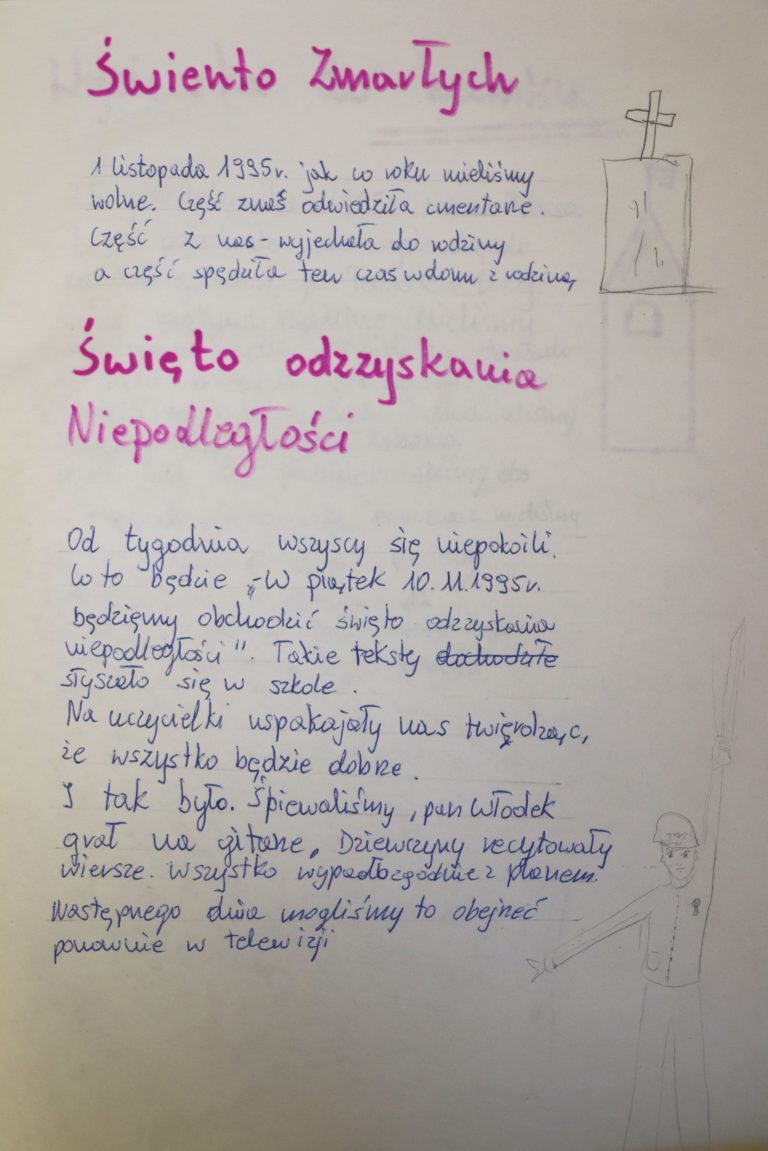 Świento Zmarłych
1 listopada 1995r. jak co roku mieliśmy
wolne. Część znas odwiedziła cmentarze.
Część z nas - wyjechała do rodziny
a część spędziła ten czas w domu z rodziną
Święto odzzyskania
Niepodległości
Od tygodnia wszyscy się niepokoili.
Co to będzie „-W piątek 10.11.1995r.
będzięmy obchodzić święto odzzyskania
niepodległości". Takie teksty dochodziłe
słyszało się w szkole.
Na uczycielki uspakajały nas twięrdząc,
że wszystko będzie dobrze.
I tak było. Śpiewaliśmy, pan Włodek
grał na gitarze, Dziewczyny recytowały
wiersze. Wszystko wypadło zgodnie z planem.
Następnego dnia mogliśmy to obejrzeć
ponownie w telewizji